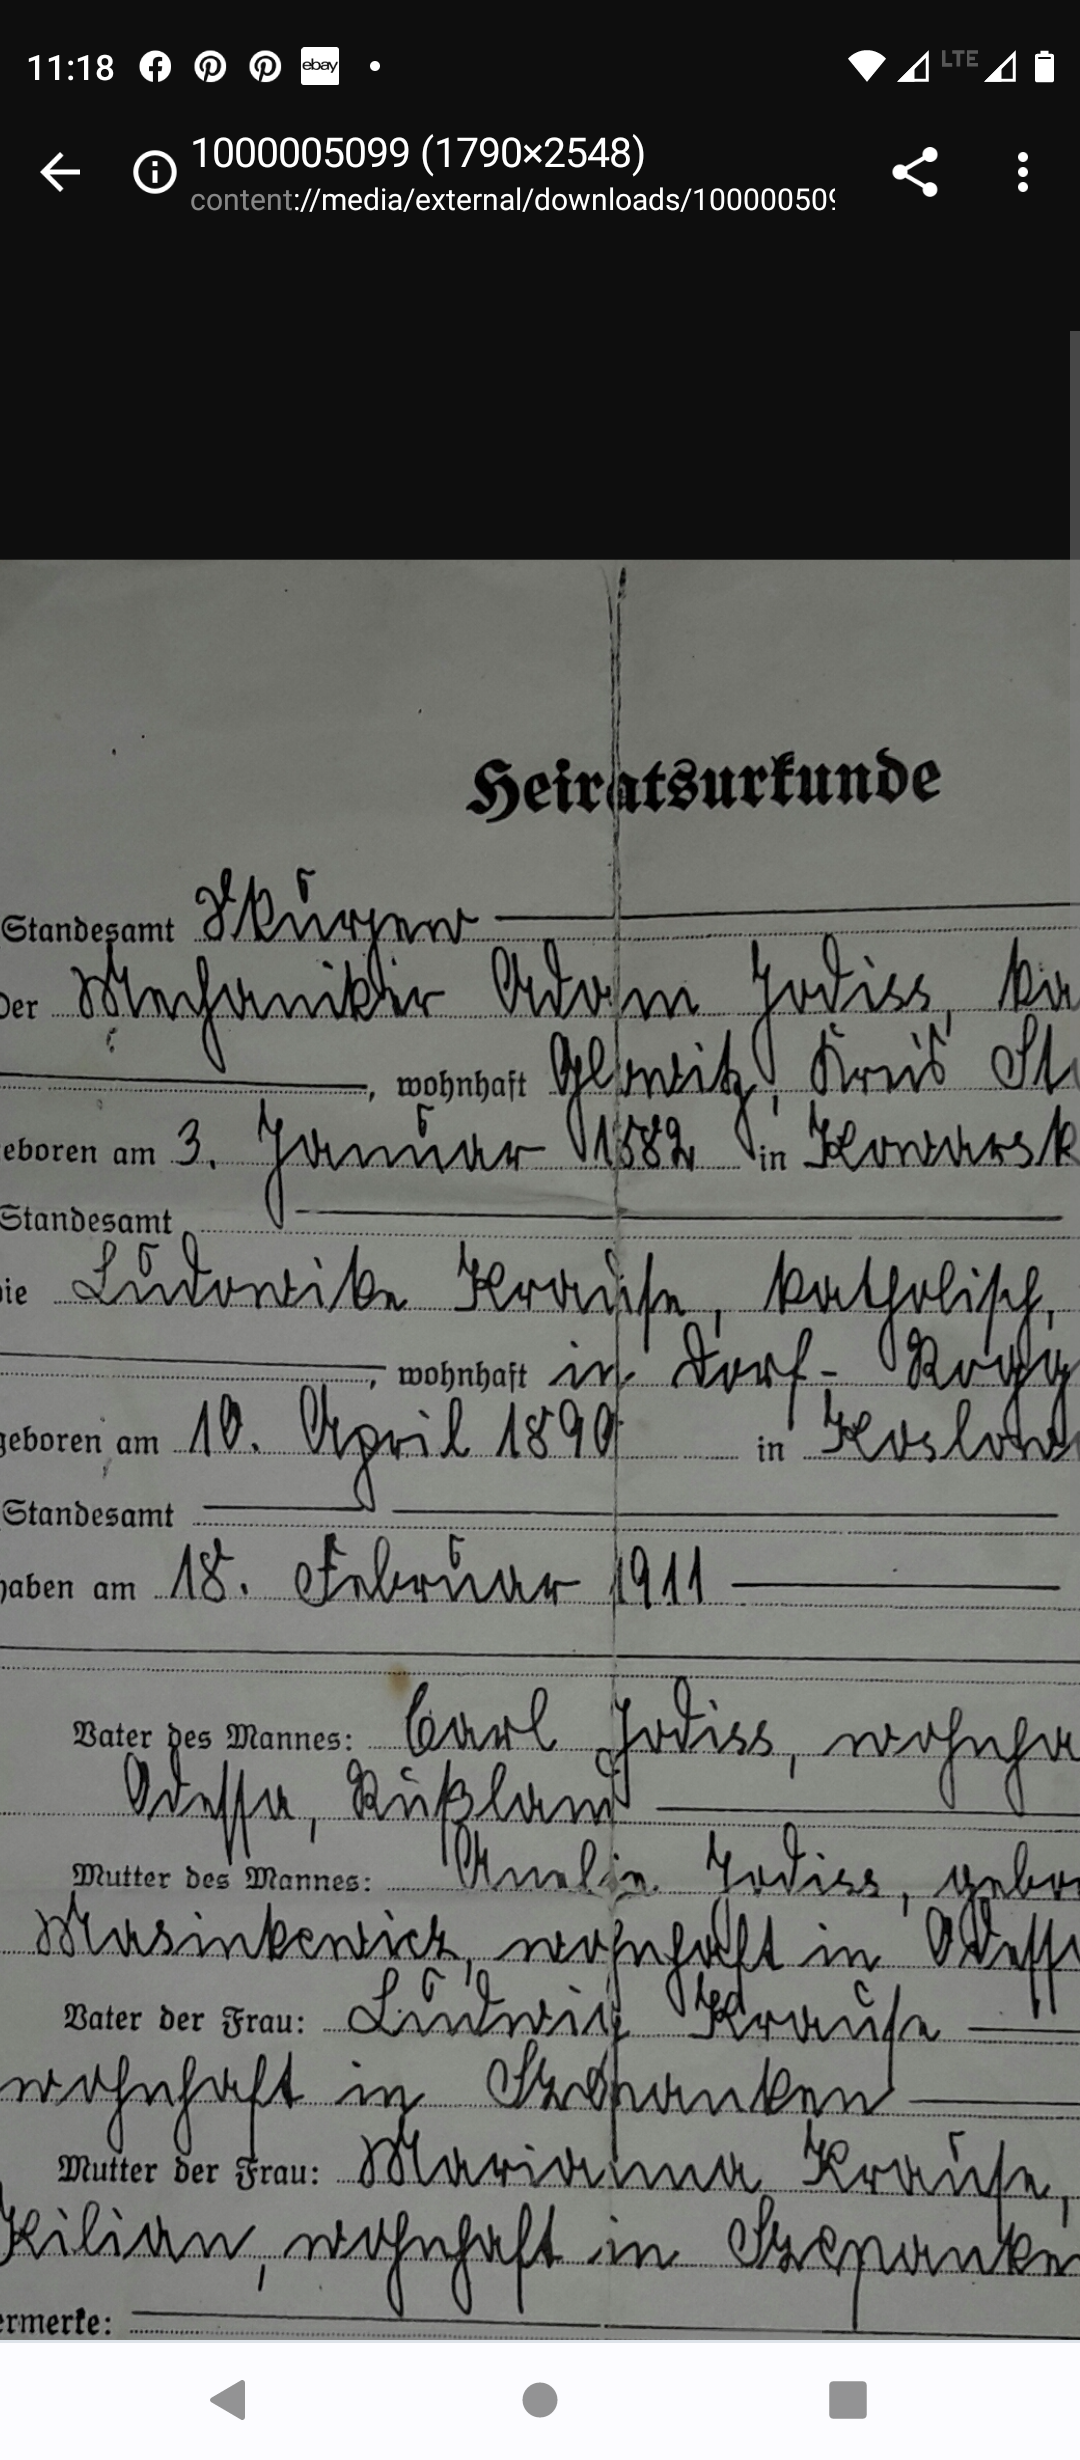 11:18 ebay LTE
1000005099 (1790×2548)
content://media/external/downloads/100000509
Heiratsurkunde
Standesamt Skürzew
Der Mechaniker Adam Jodiss, ka
, wohnhaft Glewitz, Kreis St
eboren am 3. Januar 1882 in Kowarsk
Standesamt
die Ludowika Krause, katholisch,
, wohnhaft in Dorf-
geboren am 10. April 1890 in Koslow
Standesamt
haben am 18. Februar 1911
Vater des Mannes: Carl Jodiss, wohnha
Odessa, Rußland
Mutter des Mannes: Amelia Jodiss, gebo
Masinkewicz, wohnhaft in Odess
Vater der Frau: Ludwig Krause
wohnhaft in Szepanken
Mutter der Frau: Marianna Krause,
Kilian, wohnhaft in Szepanke
ermerke: